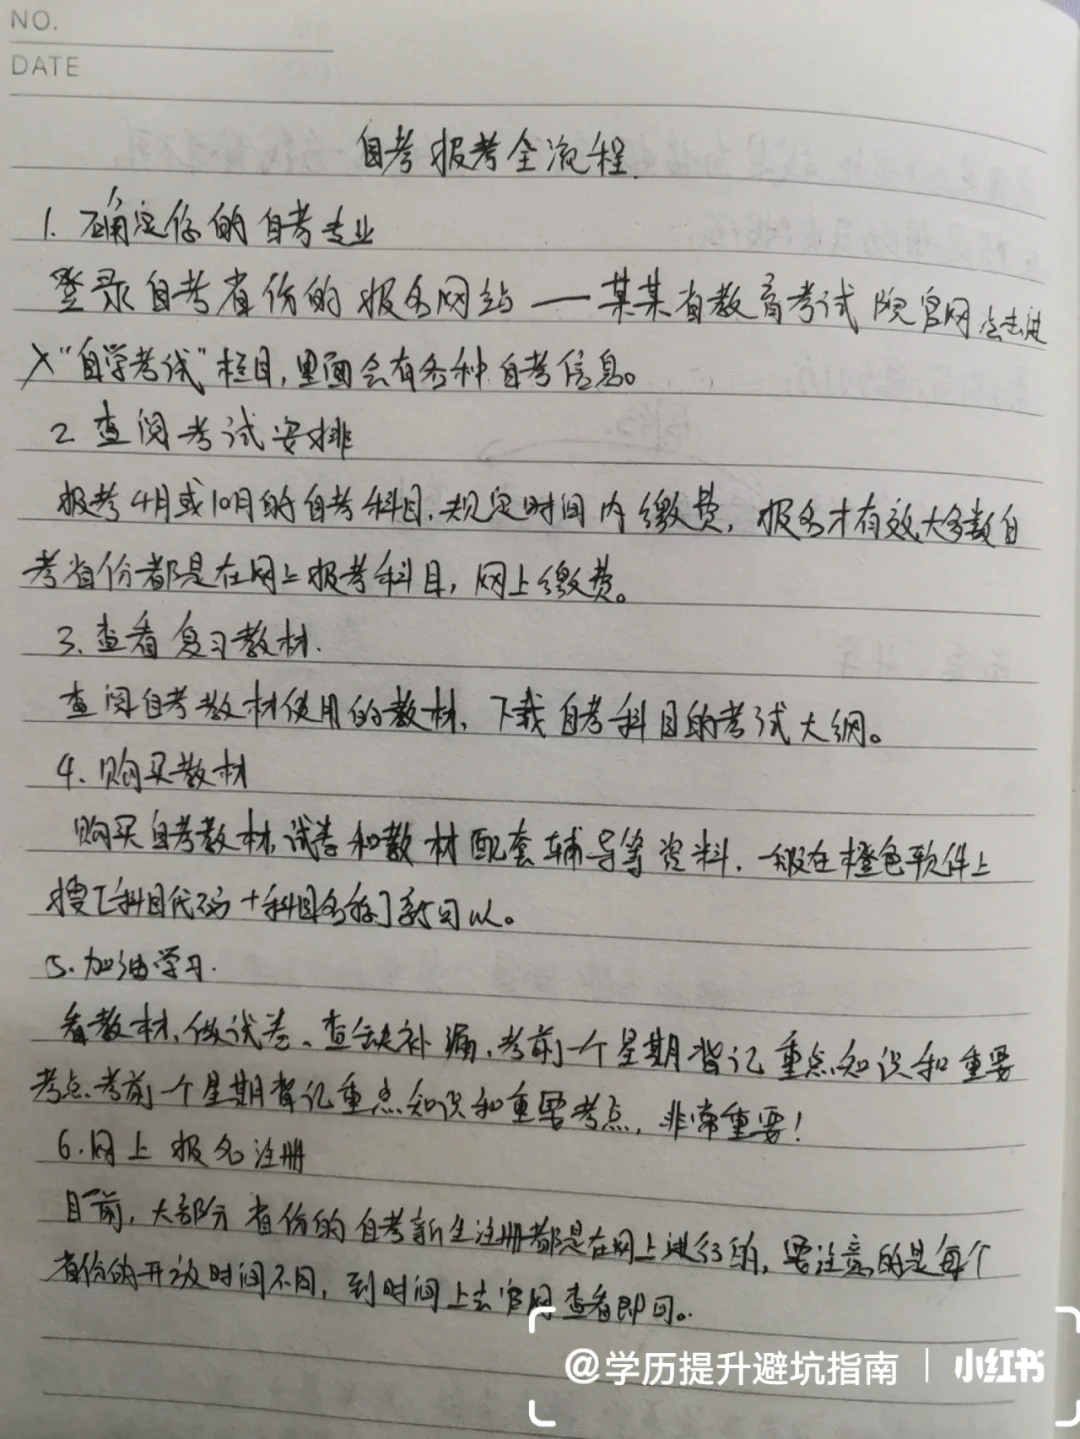 NO.
DATE
自考报考全流程.
1. 确定你的自考专业
登录自考省份的报名网站 — 某某省教育考试院官网点击进
入“自学考试”栏目,里面会有各种自考信息。
2 查阅考试安排
报考4月或10月的自考科目,规定时间内缴费,报名才有效大多数自
考省份都是在网上报考科目,网上缴费。
3. 查看复习教材.
查阅自考教材使用的教材,下载自考科目的考试大纲。
4. 购买教材
购买自考教材,试卷和教材配套辅导等资料,一般在橙色软件上
搜[科目代码+科目名称]就可以。
5. 加油学习.
看教材,做试卷、查缺补漏,考前一个星期背记重点知识和重要
考点考前一个星期背记重点知识和重要考点,非常重要!
6. 网上报名注册
目前,大部分省份的自考新生注册都是在网上进行的,要注意的是每个
省份的开放时间不同,到时间上去官网查看即可。
@学历提升避坑指南 | 小红书